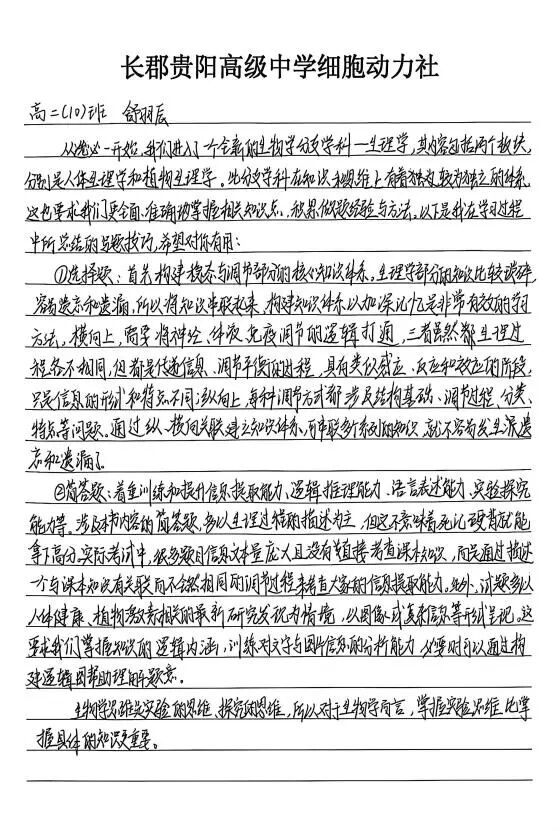 长郡贵阳高级中学细胞动力社
高二(10)班 舒羽辰
从选必一开始,我们进入了一个全新的生物学分支学科—生理学,其内容包括两个板块,
分别是人体生理学和植物生理学。此分支学科在知识和思维上有着独为独立的体系,
这也要求我们更全面、准确地掌握相关知识点、积累做题经验与方法。以下是我在学习过程
中所总结的与题技巧,希望对你有用:
①选择题:首先构建稳态与调节部分的核心知识体系。生理学部分的知识比较琐碎,
容易遗忘和遗漏,所以将知识串联起来,构建知识体系以加深记忆是非常有效的学习
方法,横向上,需要将神经、体液、免疫调节的逻辑打通,三者虽然都生理过
程各不相同,但都是传递信息、调节平衡的过程,具有类似感应、反应和效应的阶段,
只是信息的形式和特点不同;纵向上,每种调节方式都涉及结构基础、调节过程、分类、
特点等问题。通过纵、横向关联建立知识体系,而串联多个系列的知识,就不容易发生混遗
忘和遗漏了。
②简答题:着重训练和提升信息提取能力、逻辑推理能力、语言表述能力、实验探究
能力等。涉及本书内容的简答题,多以生理过程的描述为主,但这不意味着死记硬背就能
拿下高分。实际考试中,很多题目信息文本量庞大且没有直接考查课本知识,而是通过描述
一个与课本知识有关联而不全然相同的调节过程来考查大家的信息提取能力。此外,试题多以
人体健康、植物激素相关的最新研究发现为情境,以图像或表格信息等形式呈现。这
要求我们掌握知识的逻辑内涵,训练对文字与图片信息的分析能力,必要时可以通过构
建逻辑图帮助理解题意。
生物学思维是实验的思维、探究的思维,所以对于生物学而言,掌握实验思维比掌
握具体的知识更重要。